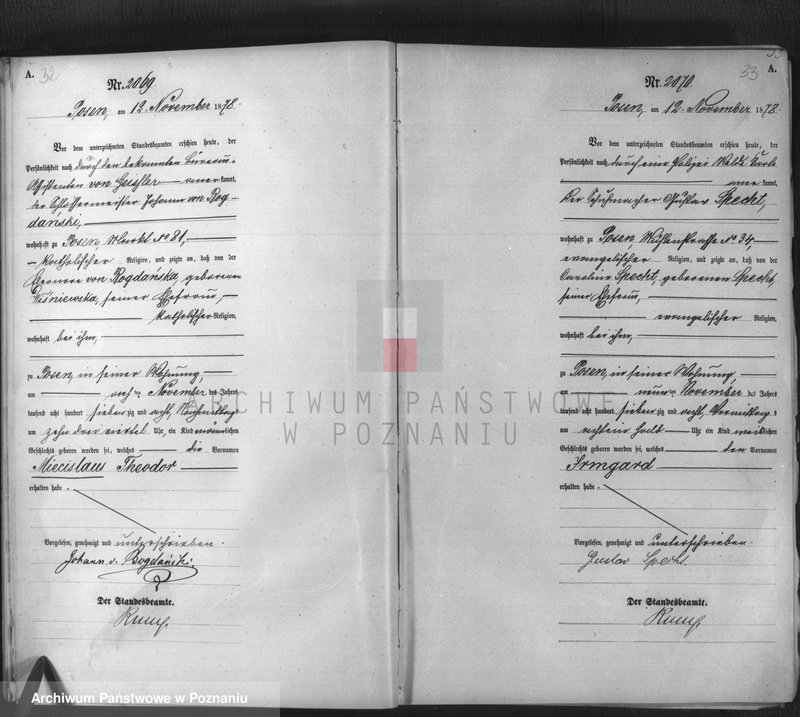 A. 32
Nr. 2069.
Posen, am 12. November 1878.
Vor dem unterzeichneten Standesbeamten erschien heute, der
Persönlichkeit nach durch den bekannten Büreau-
Assistenten von Geissler anerkannt,
der Schlossermeister Johann von Bog-
dański,
wohnhaft zu Posen, Markt No 81,
katholischer Religion, und zeigte an, daß von der
von Bogdańska, geborenen
Wiśniewska, seiner Ehefrau,
katholischer Religion,
wohnhaft bei ihm,
zu Posen, in seiner Wohnung,
am acht ten November des Jahres
tausend acht hundert siebenzig und acht, Nachmittags
um zehn drei viertel Uhr, ein Kind männlichen
Geschlechts geboren worden sei, welches die Vornamen
Miecislaus Theodor
erhalten habe.
Vorgelesen, genehmigt und unterschrieben.
Johann v. Bogdański.
Der Standesbeamte.
33 A.
Nr. 2070.
Posen, am 12. November 1878.
Vor dem unterzeichneten Standesbeamten erschien heute, der
Persönlichkeit nach durch eine Polizei Melde Karte
anerkannt,
der Schuhmacher Gustav Specht,
wohnhaft zu Posen, Mühlenstrasse No 34,
evangelischer Religion, und zeigte an, daß von der
Caroline Specht, geborenen Specht,
seiner Ehefrau,
evangelischer Religion,
wohnhaft bei ihm,
zu Posen, in seiner Wohnung,
am neun ten November des Jahres
tausend acht hundert siebenzig und acht, Vormittags
um acht ein halb Uhr, ein Kind weiblichen
Geschlechts geboren worden sei, welches den Vornamen
Irmgard
erhalten habe.
Vorgelesen, genehmigt und unterschrieben.
Gustav Specht.
Der Standesbeamte.
ARCHIWUM PAŃSTWOWE
W POZNANIU
Archiwum Państwowe w Poznaniu